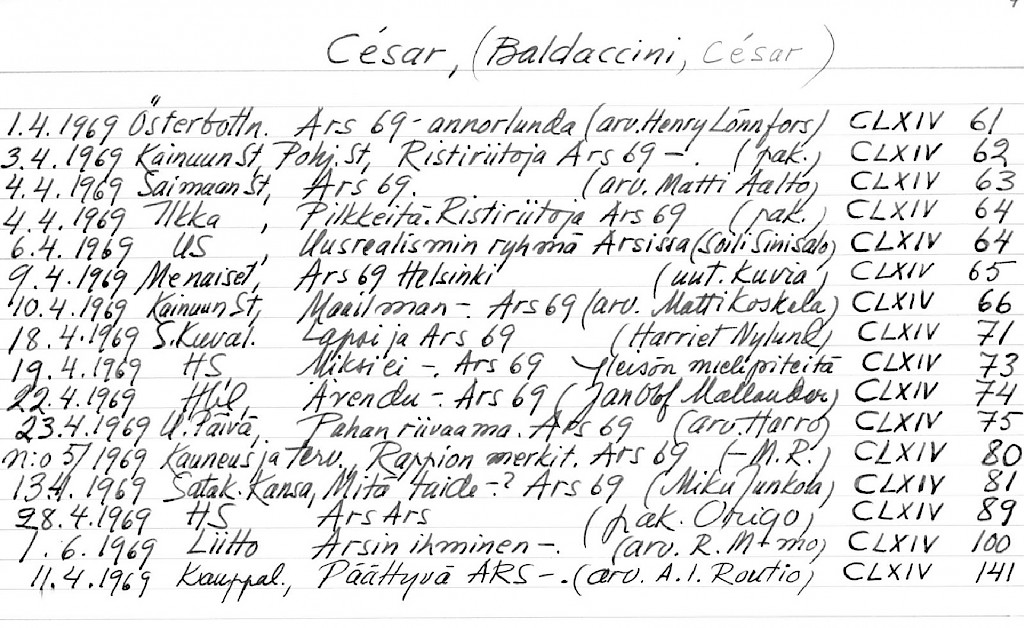 César, (Baldaccini, César)
1.4.1969 Österbottn. Ars 69 - annorlunda (arv. Henry Lönnfors) CLXIV 61
3.4.1969 Kainuun St, Pohj. St, Ristiriitoja Ars 69 -. (pak.) CLXIV 62
4.4.1969 Saimaan St, Ars 69. (arv. Matti Aalto) CLXIV 63
4.4.1969 Ilkka, Pilkkeitä. Ristiriitoja Ars 69 (pak.) CLXIV 64
6.4.1969 US, Uusrealismin ryhmä Arsissa (Soili Sinisalo) CLXIV 64
9.4.1969 Me naiset, Ars 69 Helsinki (uut. kuvia) CLXIV 65
10.4.1969 Kainuun St, Maailman -. Ars 69 (arv. Matti Koskela) CLXIV 66
18.4.1969 S.Kuval. Lapsi ja Ars 69 (Harriet Nylund) CLXIV 71
19.4.1969 HS Miksi ei -. Ars 69 yleisön mielipiteitä CLXIV 73
22.4.1969 Hbl, Ären du -. Ars 69 (Jan Olof Mallander) CLXIV 74
23.4.1969 U.Päivä, Pahan riivaama. Ars 69 (arv. Harro) CLXIV 75
n:o 5/1969 Kauneus ja terv. Rappion merkit. Ars 69 (-M.R.) CLXIV 80
13.4.1969 Satak. Kansa, Mitä taide -? Ars 69 (Miku Junkola) CLXIV 81
28.4.1969 HS Ars Ars (pak. Origo) CLXIV 89
1.6.1969 Liitto Arsin ihminen -. (arv. R. M-mo) CLXIV 100
11.4.1969 Kauppal., Päättyvä ARS -. (arv. A.I. Routio) CLXIV 141